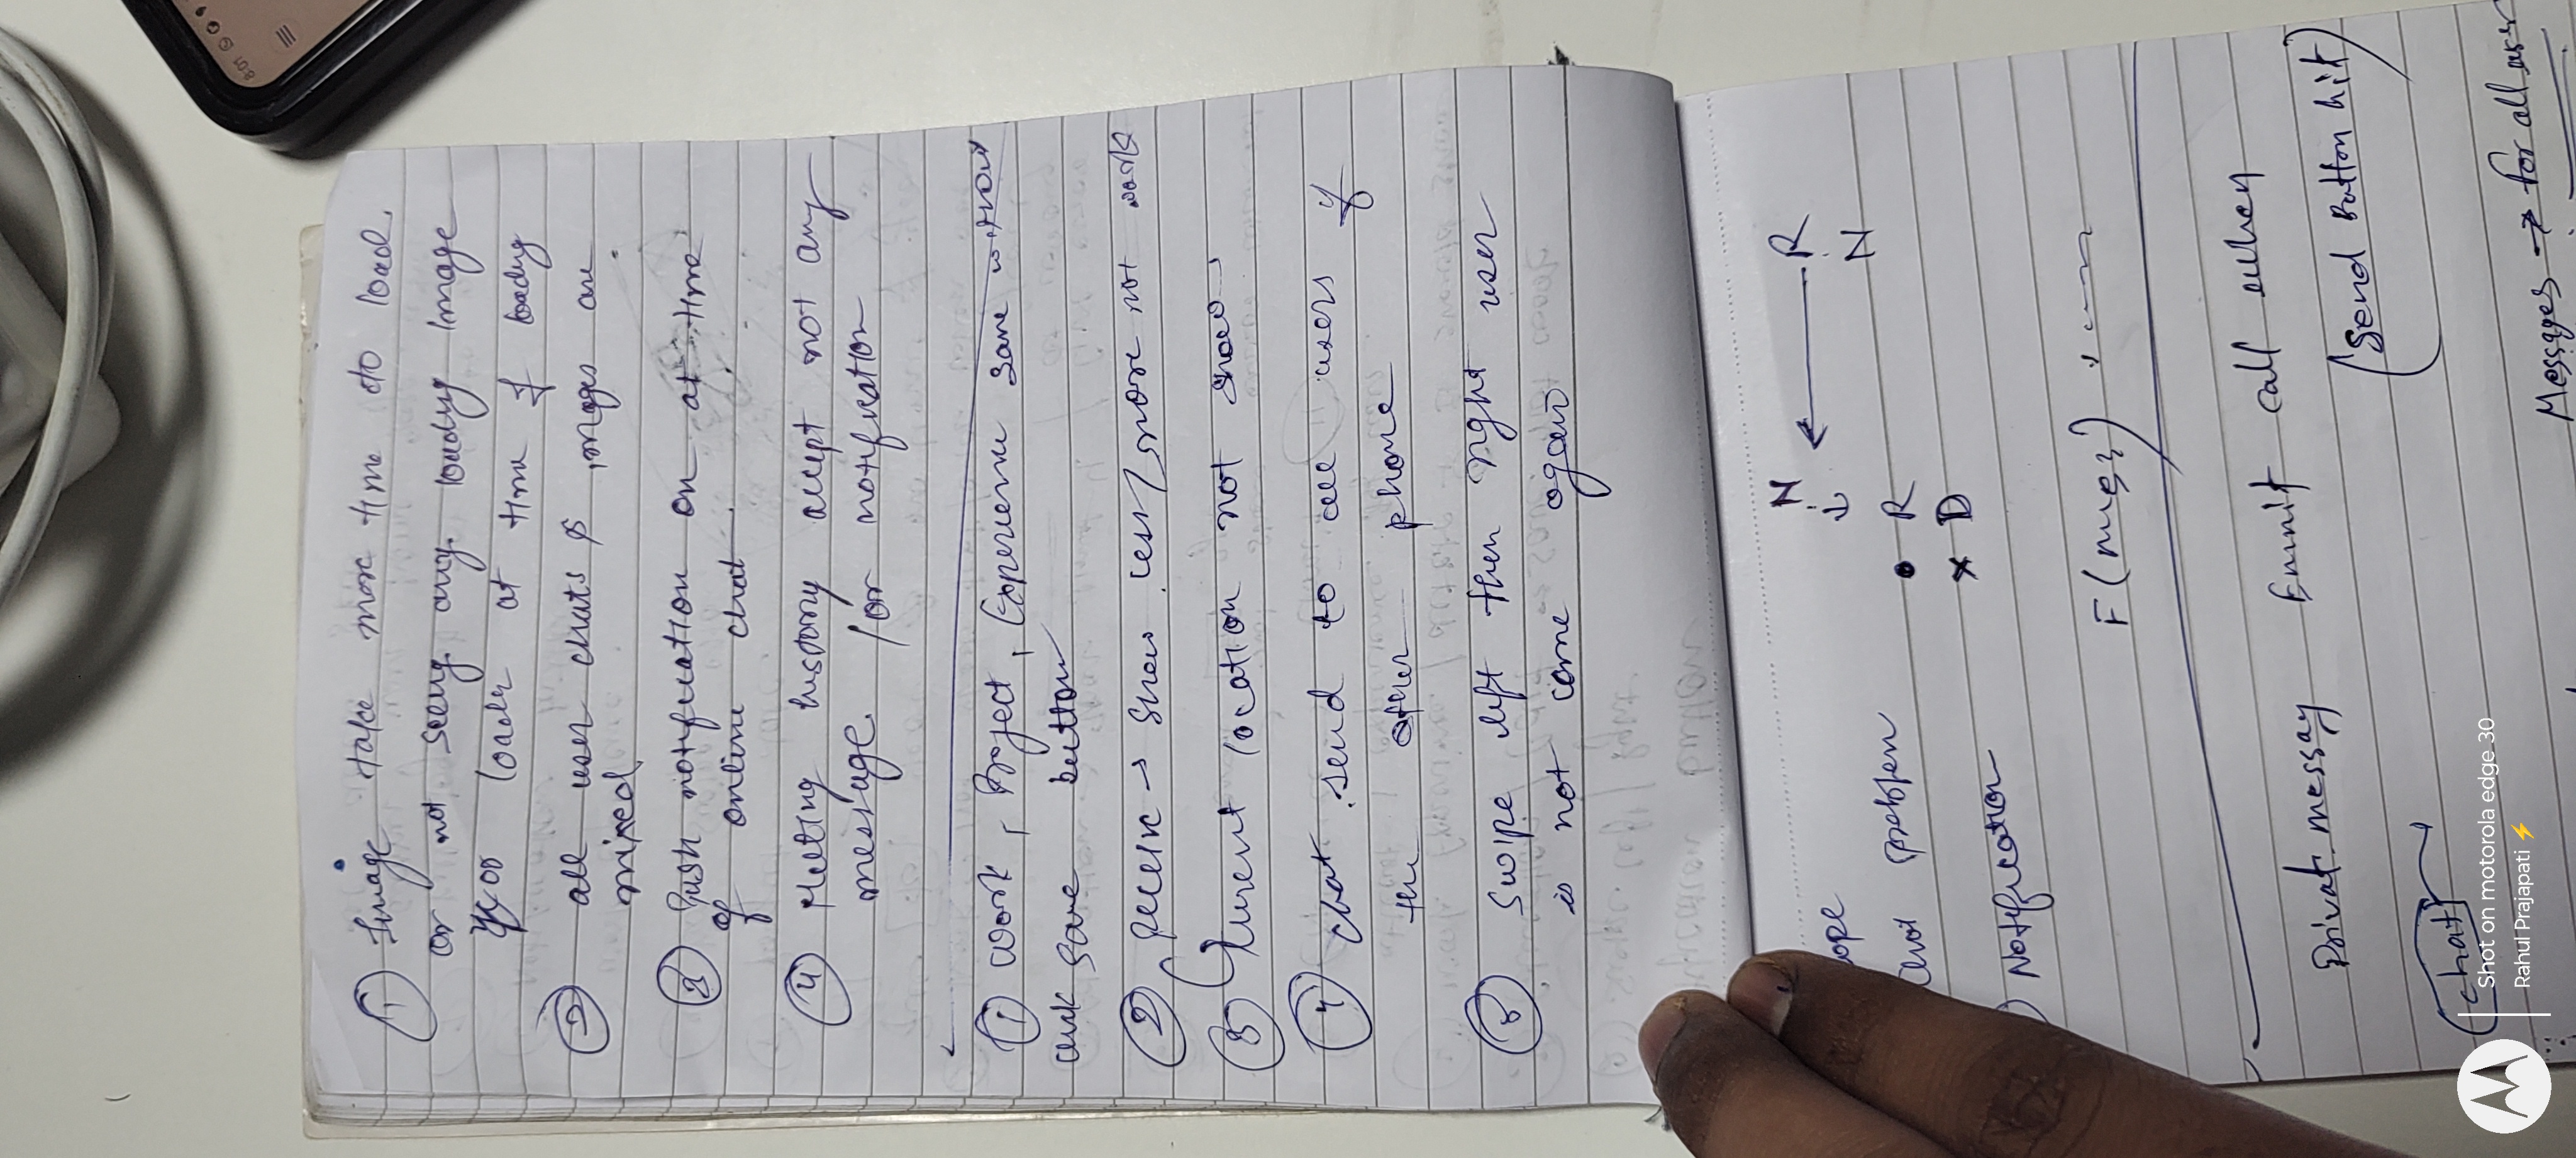 8:01
① Image take more time to load.
or not seeug any loadyg Image
or loader at time of loadyg
② all user chats & images are
mixed
③ Push notification on at time
of online chat.
④ Meeting history accept not any
message. /or notification
① Work, Project, Experience save without
click save button
② receive → show less/more not work
③ Current location not show
④ chat send to all users of
the other phone
⑤ Swipe left then right user
is not come again
N ← R
ope ↓ N
Chat problem • R
× D
) Notification
F(
Private messag Emmit call when
(Send Button hit)
chat
Messages → for all user
Shot on motorola edge 30
Rahul Prajapati ⚡